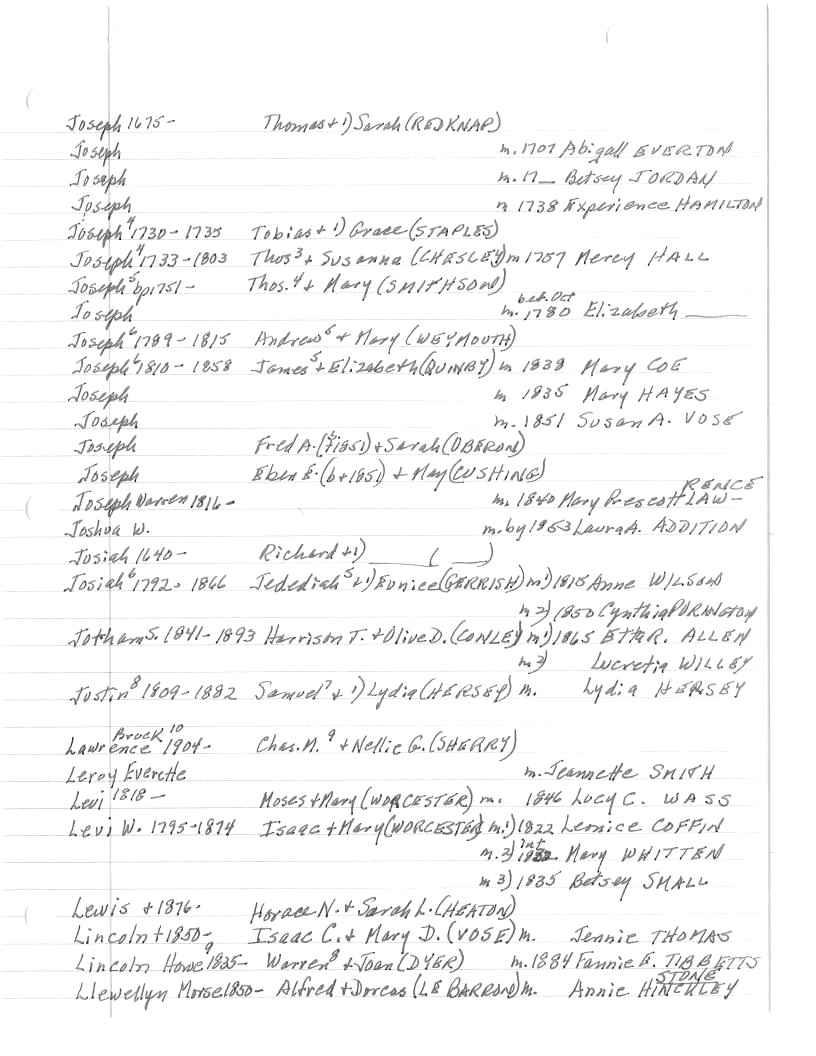 Joseph 1675- Thomas + 1) Sarah (REDKNAP)
Joseph m. 1707 Abigall EVERTON
Joseph m. 17__ Betsey JORDAN
Joseph m 1738 Experience HAMILTON
Joseph⁴ 1730-1735 Tobias + 1) Grace (STAPLES)
Joseph⁴ 1733-1803 Thos³ + Susanna (CHESLEY) m 1757 Mercy HALL
Joseph⁵ bp1751- Thos.⁴ + Mary (SMITHSON)
bef. Oct
Joseph m. 1780 Elizabeth ______
Joseph⁶ 1789-1815 Andrew⁵ + Mary (WEYMOUTH)
Joseph⁶ 1810-1858 James⁵ + Elizabeth (QUINBY) m 1838 Mary COE
Joseph m 1835 Mary HAYES
Joseph m. 1851 Susan A. VOSE
Joseph Fred A. (1851) + Sarah (OBERON)
Joseph Eben E. (b+1851) + May (CUSHING)
RENCE
Joseph Warren 1816- m. 1840 Mary Prescott LAW-
Joshua W. m. by 1953 Laura A. ADDITION
Josiah 1640- Richard + 1) ______ ( )
Josiah⁶ 1792-1866 Jedediah⁵ + 1) Eunice (GERRISH) m1) 1815 Anne WILSON
m 2) 1850 Cynthia PURINGTON
Jotham S. 1841-1893 Harrison T. + Olive D. (CONLEY) m1) 1865 Etta R. ALLEN
m 2) Lucretia WILLEY
Justin⁸ 1809-1882 Samuel⁷ + 1) Lydia (HERSEY) m. Lydia HERSEY
Brock ¹⁰
Lawrence 1904- Chas. M.⁹ + Nellie G. (SHERRY)
Leroy Everette m. Jeannette SMITH
Levi 1818- Moses + Mary (WORCESTER) m. 1846 Lucy C. WASS
Levi W. 1795-1874 Isaac + Mary (WORCESTER) m. 1) 1822 Leonice COFFIN
int
m. 2) 1832 Mary WHITTEN
m 3) 1835 Betsey SMALL
Lewis +1876- Horace N. + Sarah L. (HEATON)
Lincoln +1850- Isaac C. + Mary D. (VOSE) m. Jennie THOMAS
Lincoln Howe⁹ 1835- Warren⁸ + Joan (DYER) m. 1884 Fannie E. TIBBETTS
STONE
Llewellyn Morse 1850- Alfred + Dorcas (LE BARRON) m. Annie HINCKLEY